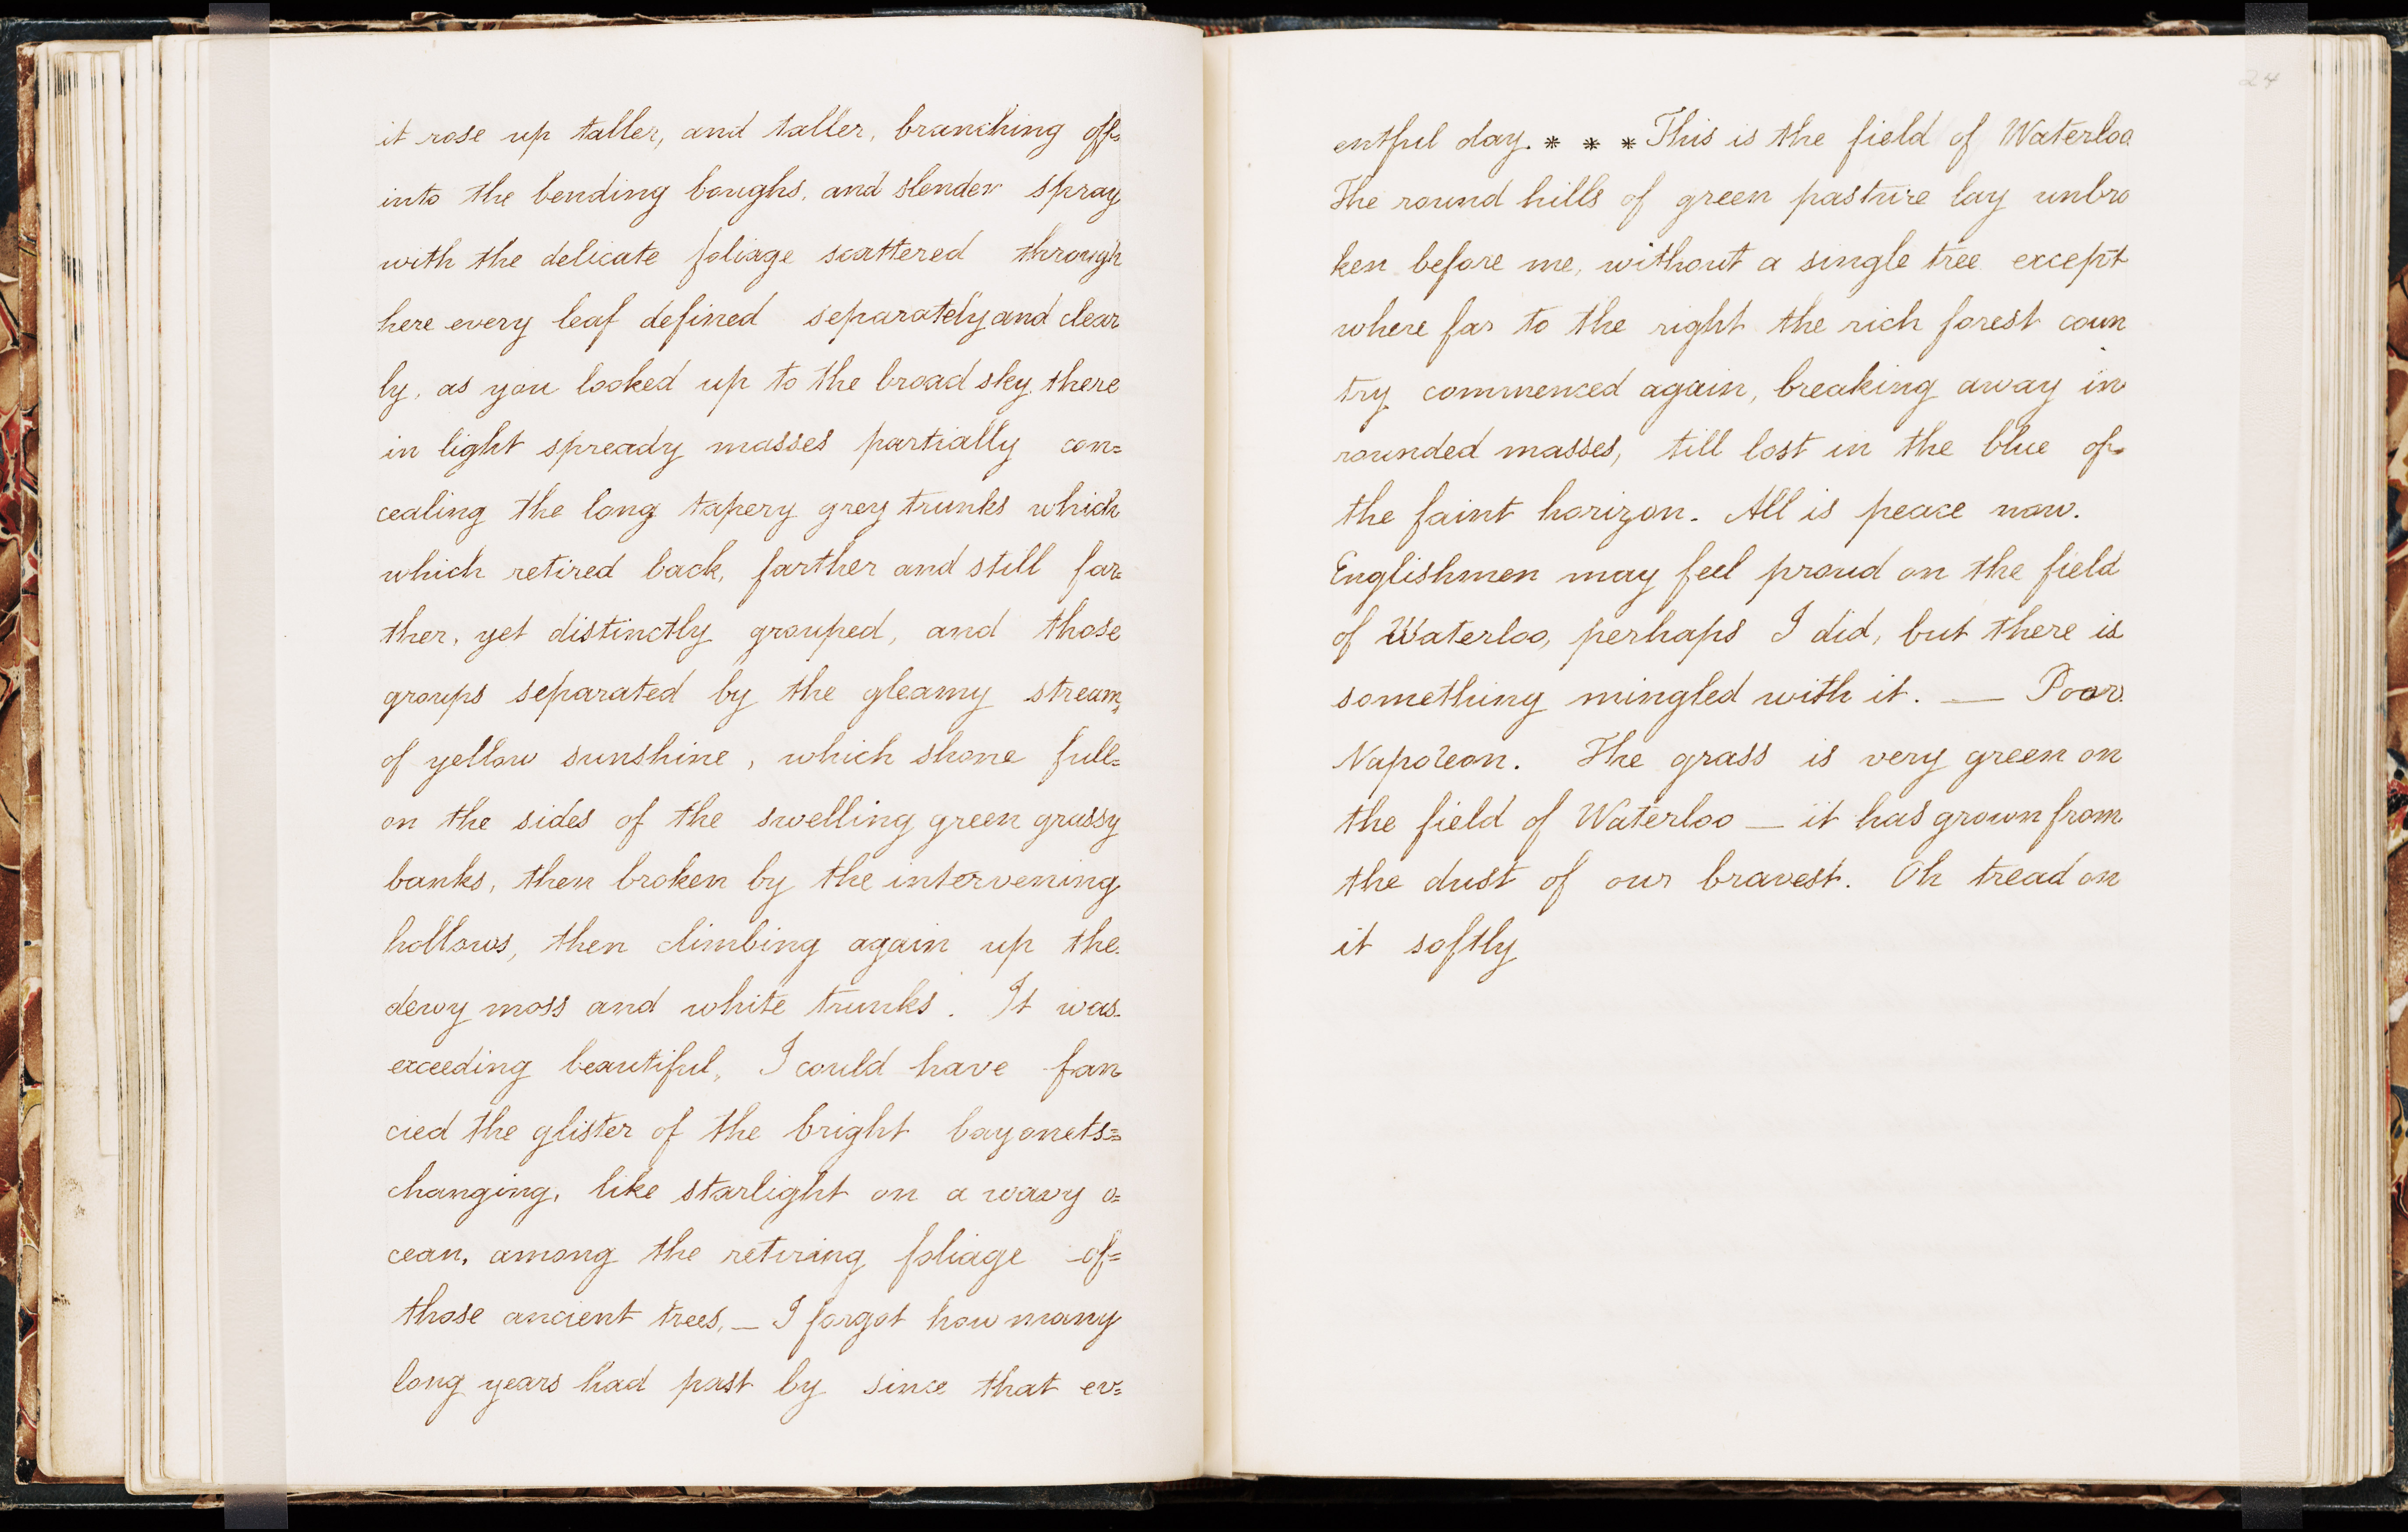 it rose up taller, and taller, branching off-
into the bending boughs, and slender spray
with the delicate foliage scattered through
here every leaf defined separately and clear
ly, as you looked up to the broad sky, there
in light spready masses partially con=
cealing the long tapery grey trunks which
which retired back, farther and still far=
ther, yet distinctly grouped, and those
groups separated by the gleamy stream,
of yellow sunshine, which shone full=
on the sides of the swelling green grassy
banks, then broken by the intervening
hollows, then climbing again up the
dewy moss and white trunks. It was
exceeding beautiful, I could have fan
cied the glister of the bright bayonets=
changing, like starlight on a wavy o=
cean, among the retiring foliage of=
those ancient trees, — I forgot how many
long years had past by since that ev=
24
entful day. * * * This is the field of Waterloo
The round hills of green pasture lay unbro
ken before me, without a single tree except
where far to the right the rich forest coun
try commenced again, breaking away in
rounded masses, till lost in the blue of-
the faint horizon. All is peace now.
Englishmen may feel proud on the field
of Waterloo, perhaps I did, but there is
something mingled with it. — Poor
Napoleon. The grass is very green on
the field of Waterloo — it has grown from
the dust of our bravest. Oh tread on
it softly